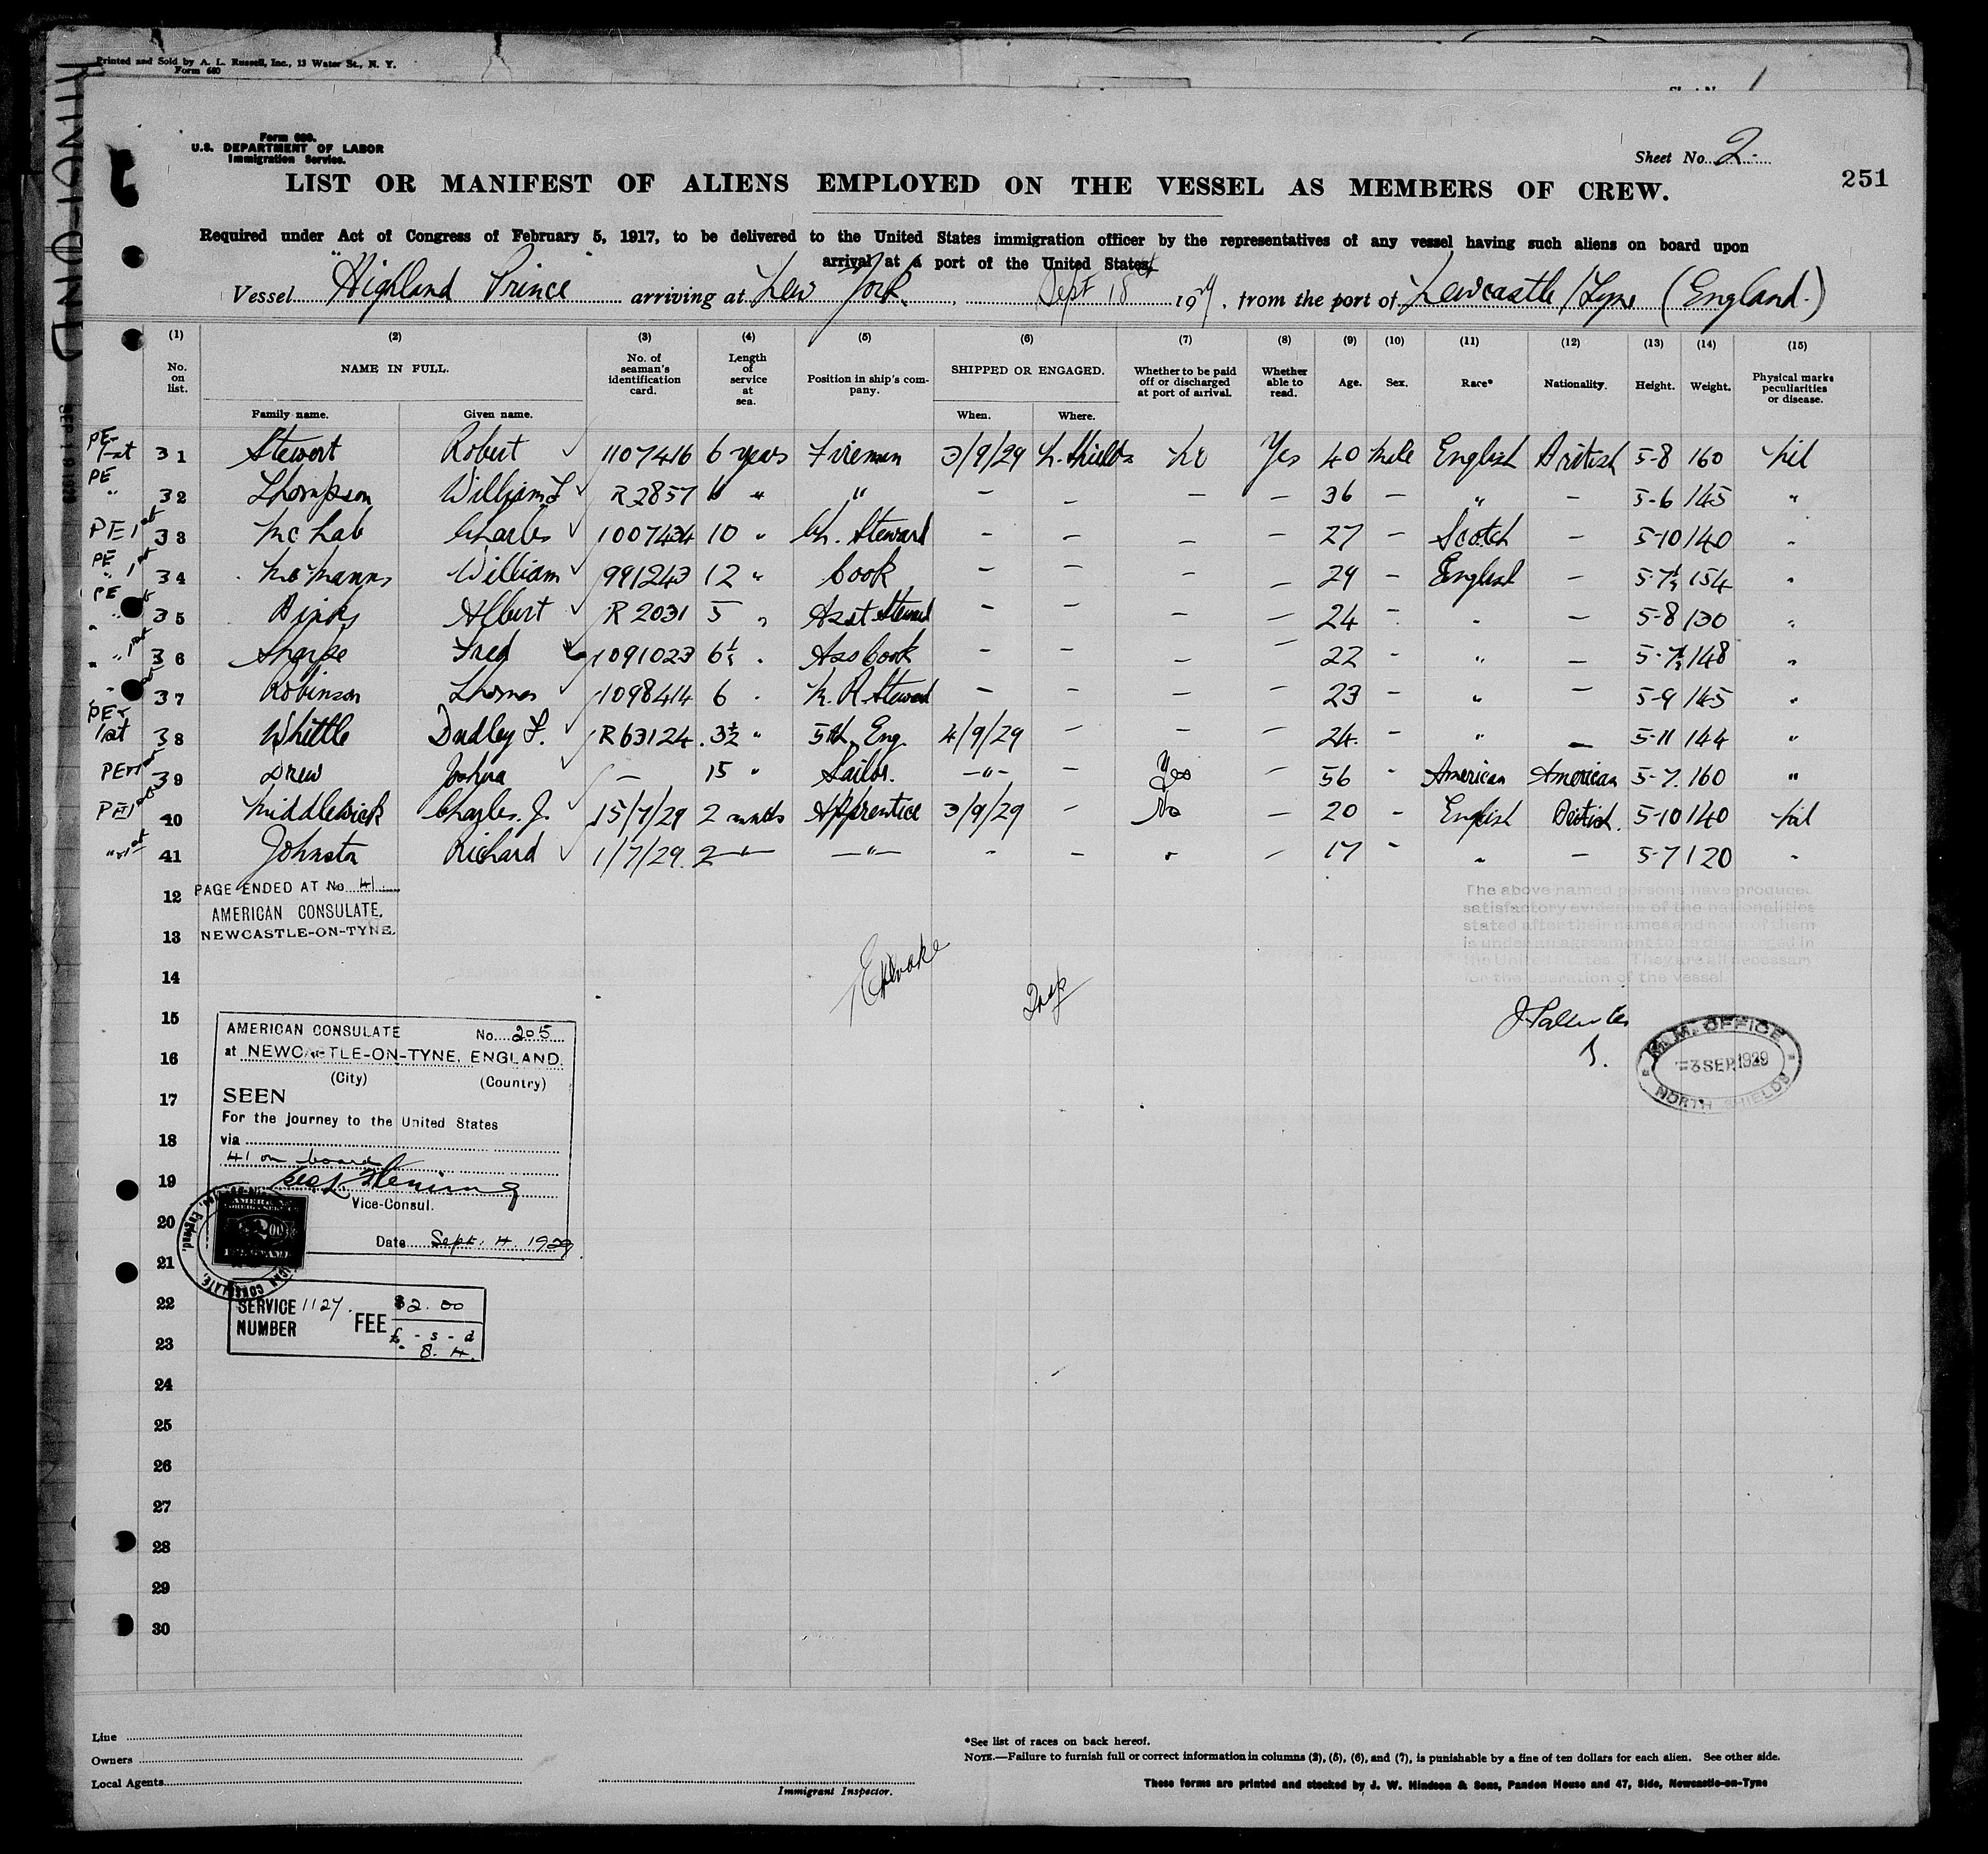 Printed and Sold by A. L. Russell, Inc., 13 Water St., N. Y.
Form 680
1
Form 680.
U.S. DEPARTMENT OF LABOR
Immigration Service.
Sheet No. 2.
251
LIST OR MANIFEST OF ALIENS EMPLOYED ON THE VESSEL AS MEMBERS OF CREW.
Required under Act of Congress of February 5, 1917, to be delivered to the United States immigration officer by the representatives of any vessel having such aliens on board upon
arrival at a port of the United States.
Vessel "Highland Prince" arriving at New York, Sept 18th 1929, from the port of Newcastle/Tyne (England.)
(1) (2) (3) (4) (5) (6) (7) (8) (9) (10) (11) (12) (13) (14) (15)
No. on list. NAME IN FULL. No. of seaman's identification card. Length of service at sea. Position in ship's company. SHIPPED OR ENGAGED. Whether to be paid off or discharged at port of arrival. Whether able to read. Age. Sex. Race* Nationality. Height. Weight. Physical marks peculiarities or disease.
Family name. Given name. When. Where.
PE 1st 31 Stewart Robert 1107416 6 years Fireman 3/9/29 N. Shields No Yes 40 Male English British 5-8 160 Nil
PE " 32 Thompson William 𝐓 R 2857 6 " " - - - - 36 - " - 5-6 145 "
PE 1st 33 McNab Charles 1007434 10 " Ch. Steward - - - - 27 - Scotch - 5-10 140 "
PE 1st 34 McManns William 991243 12 " Cook - - - - 29 - English - 5-7½ 154 "
PE 35 Binks Albert R 2031 5 " Asst Steward - - - - 24 - " - 5-8 130 "
" 1st 36 Sharpe Fred 1091023 6½ " Ass Cook - - - - 22 - " - 5-7½ 148 "
" 37 Robinson Thomas 1098414 6 " M. R. Steward - - - - 23 - " - 5-9 145 "
PE 1st 38 Whittle Dudley F. R 63124 3½ " 5th Eng. 4/9/29 - - - 24 - " - 5-11 144 "
PE 1st 39 Drew Joshua - 15 " Sailor. -"- - Yes - 56 - American American 5-7 160 "
PE 1st 40 Middlewick Charles. J. 15/7/29 2 mnths Apprentice 3/9/29 - No - 20 - English British. 5-10 140 Nil
" 1st 41 Johnston Richard 1/7/29 2 -"- -"- - - " - 17 - " - 5-7 120 "
12 PAGE ENDED AT No 41
AMERICAN CONSULATE,
13 NEWCASTLE-ON-TYNE.
The above named persons have produced
satisfactory evidence of the nationalities
stated after their names and none of them
is under an agreement to be discharged in
the United States. They are all necessary
for the operation of the vessel.
14
Insp
15
AMERICAN CONSULATE No. 205
16 at NEWCASTLE-ON-TYNE, ENGLAND.
(City) (Country)
M. M. OFFICE
-3 SEP. 1929
NORTH SHIELDS
17 SEEN
For the journey to the United States
18 via
41 on board
19
Vice-Consul.
20
Date Sept. 4. 1929
21
22 SERVICE NUMBER 1127. FEE $2.00
£ - s - d
23 8. 4.
24
25
26
27
28
29
30
Line
Owners
Local Agents
Immigrant Inspector.
*See list of races on back hereof.
NOTE.—Failure to furnish full or correct information in columns (2), (5), (6), and (7), is punishable by a fine of ten dollars for each alien. See other side.
These forms are printed and stocked by J. W. Hindson & Sons, Pandon House and 47, Side, Newcastle-on-Tyne